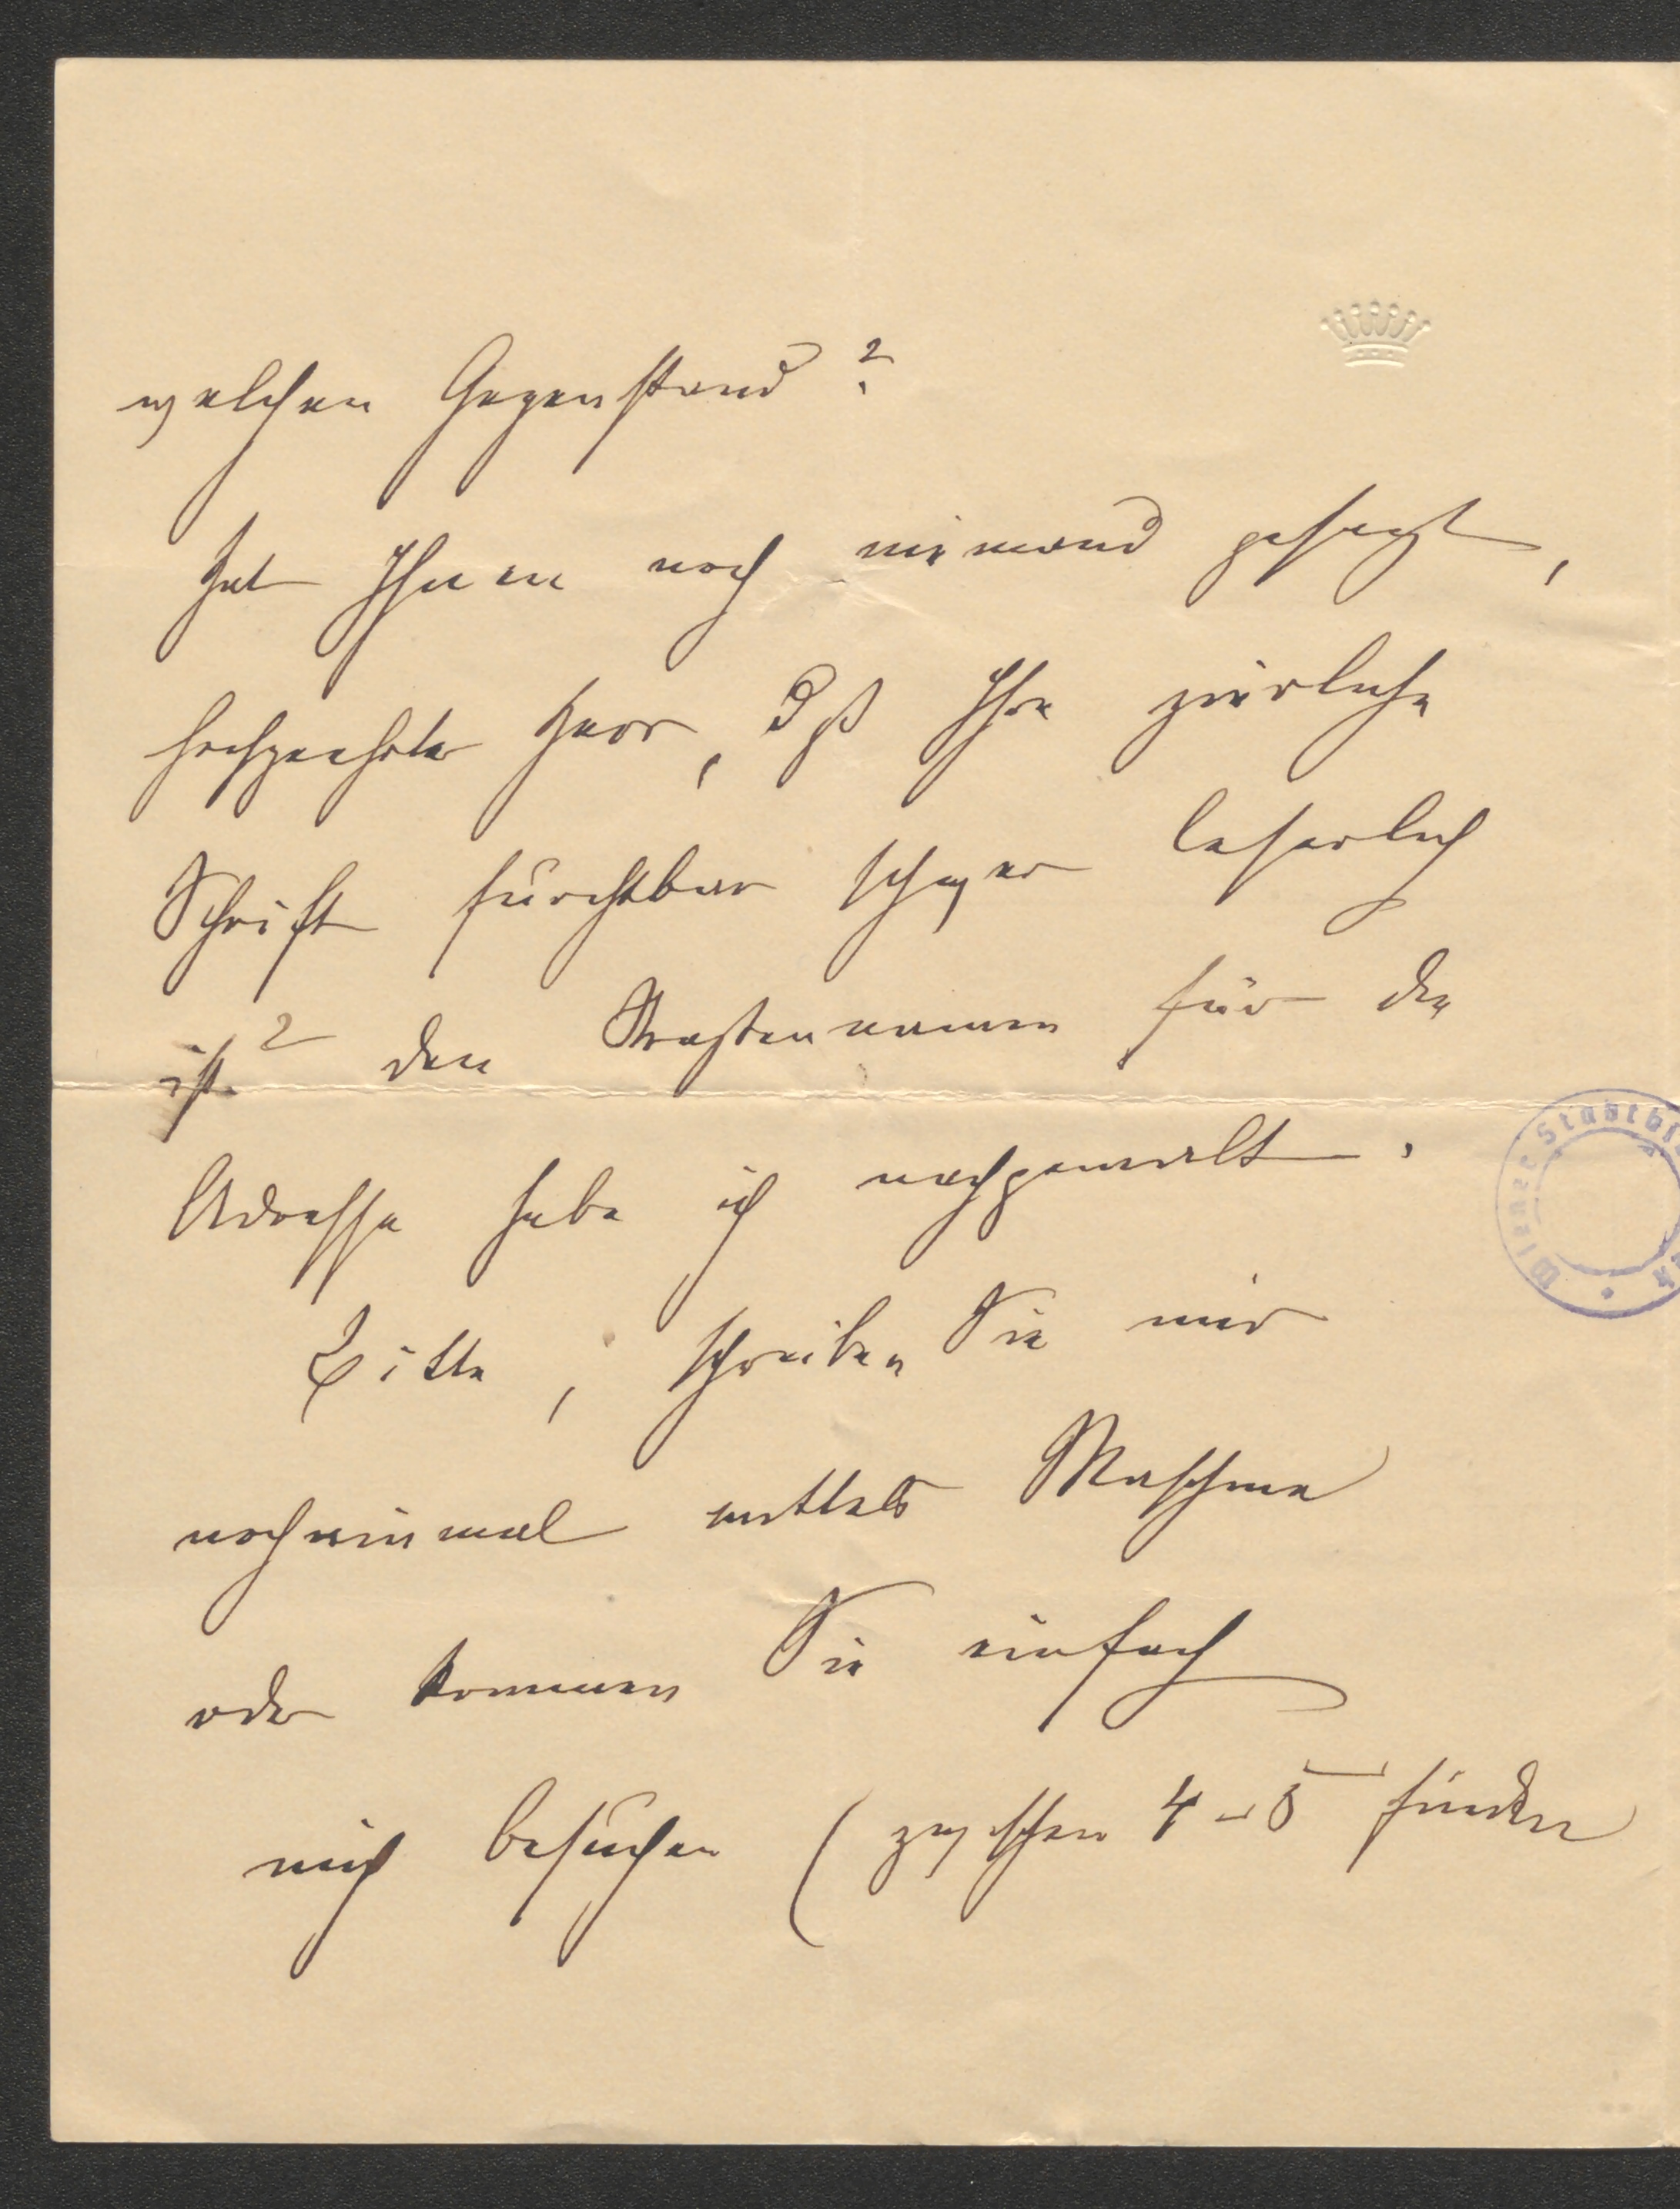 welchen Gegenstand?
Hat Ihnen noch niemand gesagt,
hochgeehrter Herr, dß Ihre zierliche
Schrift furchtbar schwer leserlich
ist? Den Strassennamen für die
Adresse habe ich nachgemalt.
Bitte, schreiben Sie mir
noch einmal mittels Maschine
oder kommen Sie einfach
mich besuchen (zwischen 4–5 finden
Wiener Stadtbi